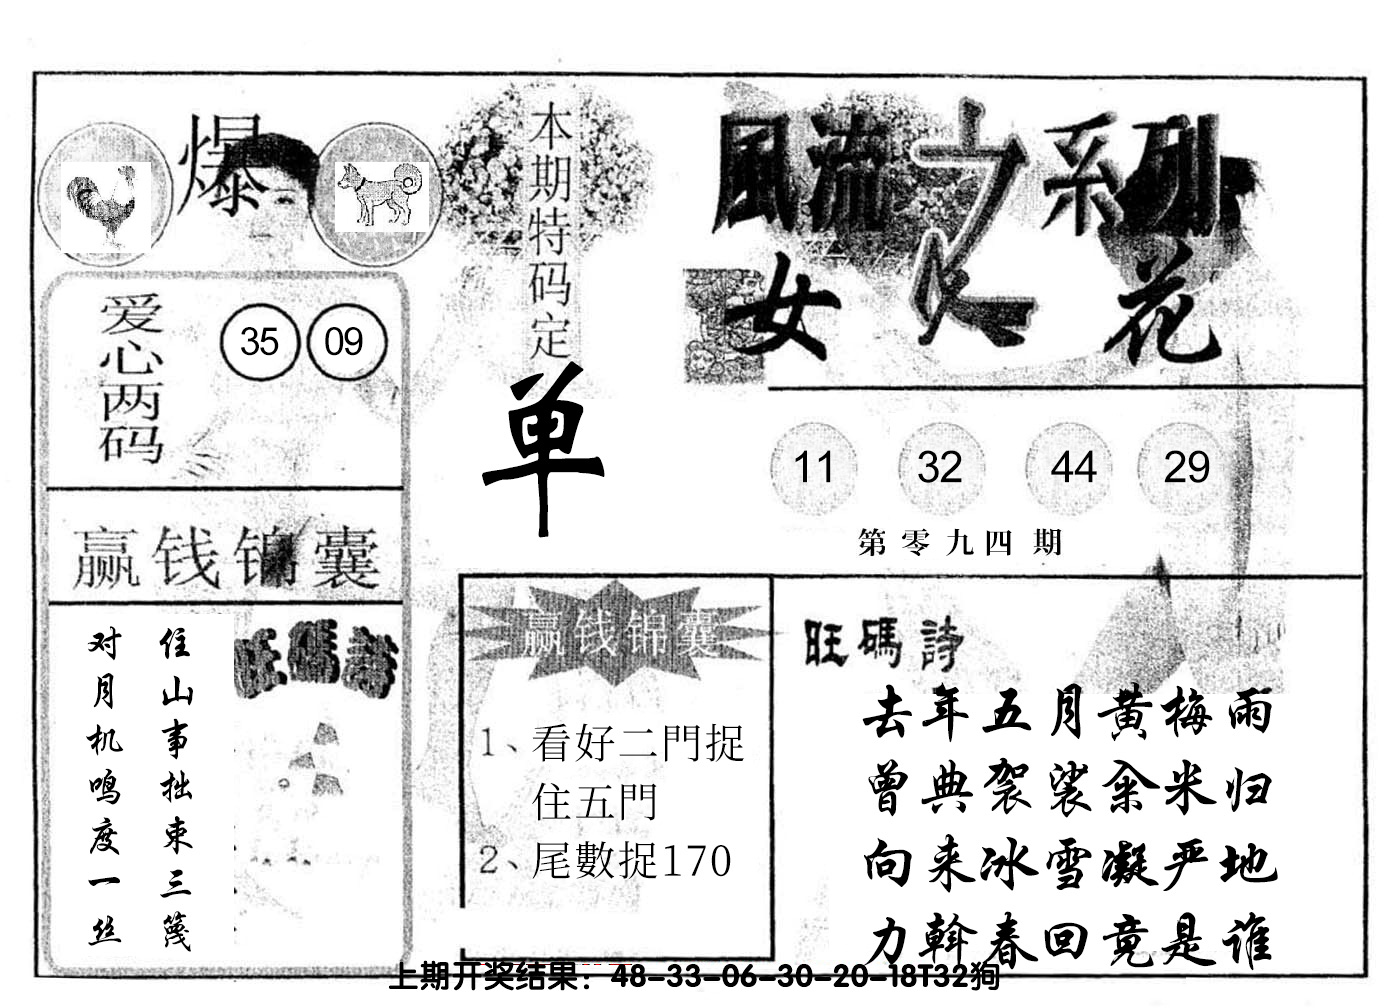 爆
爱心两码
35 09
赢钱锦囊
住山事拙束三篾
对月机鸣度一丝
旺碼詩
本期特码定
单
赢钱锦囊
1、看好二門捉
住五門
2、尾數捉170
風流之系列
女人花
11 32 44 29
第零九四期
旺碼詩
去年五月黄梅雨
曾典袈裟籴米归
向来冰雪凝严地
力斡春回竟是谁
上期开奖结果：48-33-06-30-20-18T32狗